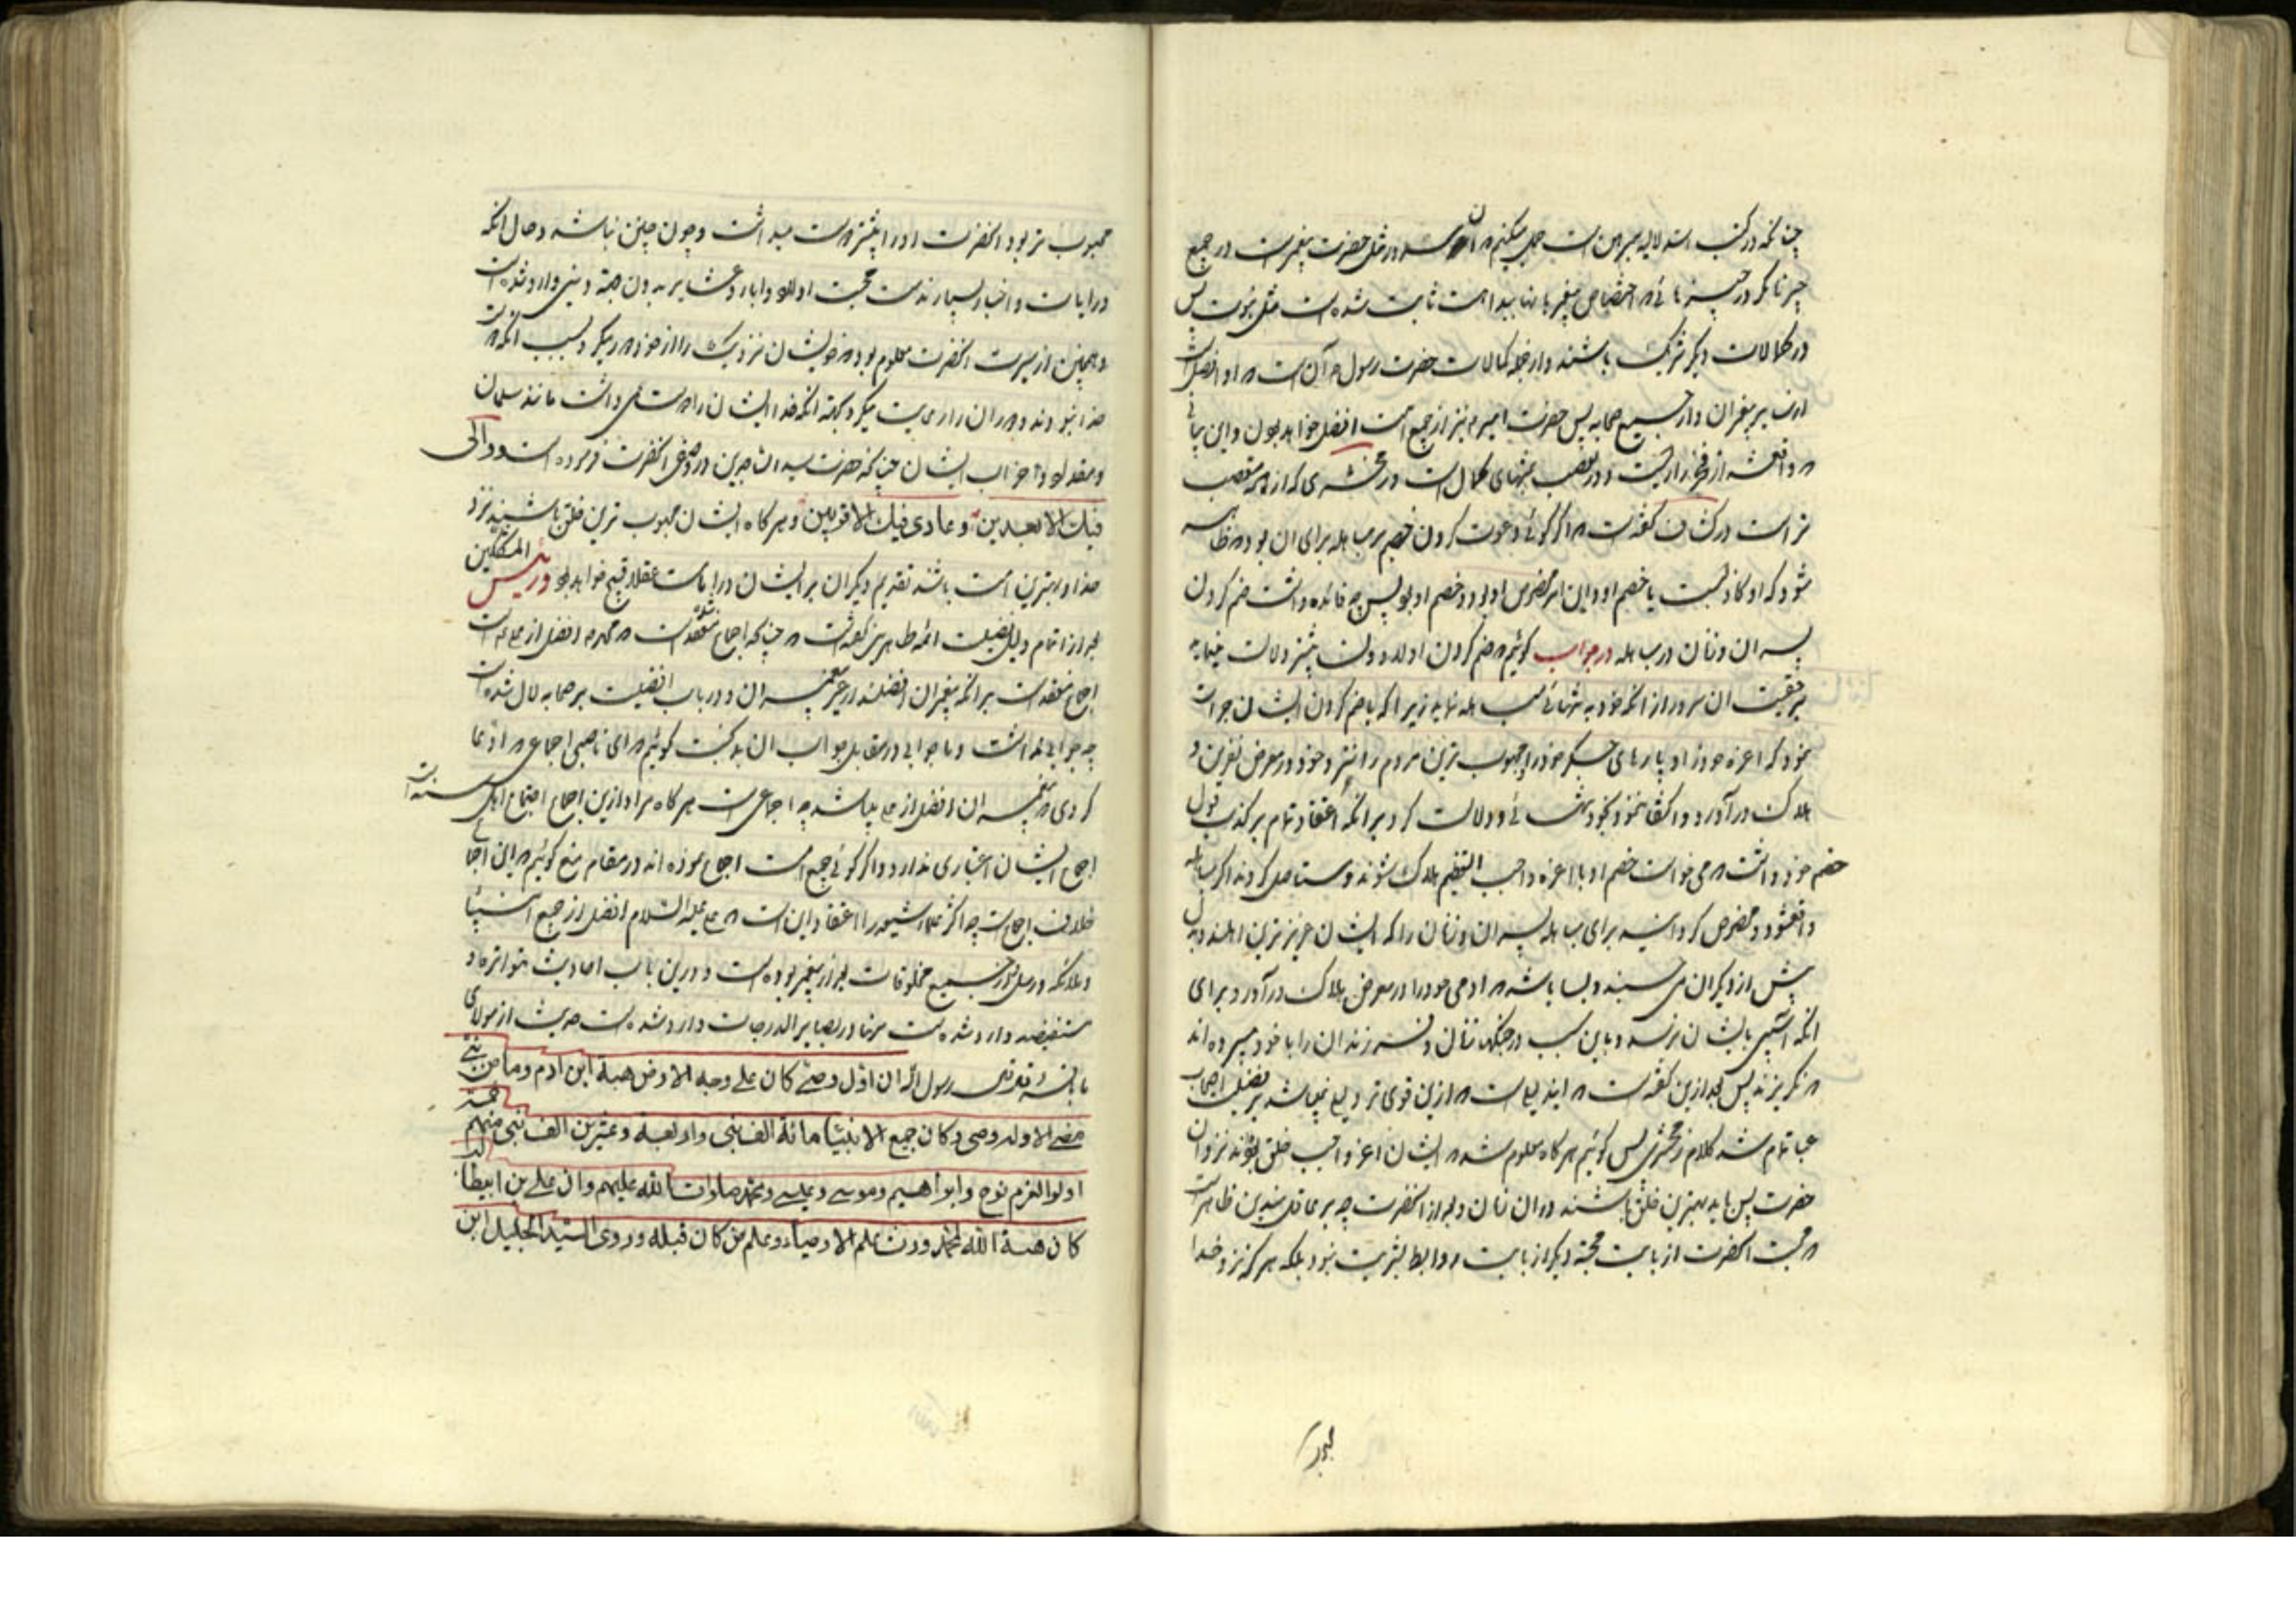 چنانکه در کتب استدلالیه مبرهن است حمل میکنیم که او در مثل حضرت پیغمبر است در جمیع
چیزها مگر در چیزهائی که اختصاص پیغمبر بانها ببداهت ثابت شده است مثل نبوت پس
در کمالات دیگر شریک باشند و از جمله کمالات حضرت رسول م آن است که او افضل است
از پیغمبران و از جمیع صحابه پس حضرت امیر م نیز از جمیع امت افضل خواهد بود و این
از فخر رازیست و در تعصب بمنتهای کمال است و زمخشری که از همه متعصب
تر است در کشاف گفته است که اگر گوئی دعوت کردن خصم بر مباهله برای آن بود که ظاهر
شود که او کاذبست یا خصم او و این امر مخصوص او بود و خصم او بود پس چه فائده داشت ضم کردن
پسران و زنان در مباهله در جواب گوئیم که ضم کردن اولاد و زنان بیشتر دلالت
بر حقیت آن سرور از آنکه خود به تنهائی مباهله نماید زیرا که با ضم کردن ایشان جرات
نمود که اعزه خود و پارهای جگر خود و محبوب ترین مردم را نزد خود در معرض نفرین و
هلاک در آورد و اکتفا ننمود بخود به تنهائی و دلالت کرد بر انکه اعتقاد تمام بر کذب قول
خصم خود داشت که می خواست خصم او با اعزه واجب التعظیم هلاک شوند و مستاصل گردند اگر مباهله
واقع شود و مخصوص گردانید برای مباهله پسران و زنان را که ایشان عزیزترین اهلند و بدل
بیش از دیگران می چسبند و بسا باشد که ادمی خود را در معرض هلاک درآورد برای
انکه اسیبی بایشان نرسد و باین سبب در جنگها زنان و فرزندان را با خود میبرده اند
که نگریزند پس بعد ازین گفته است که این دلیلی است که ازین قوی تر دلیلی نمیباشد بر فضیلت اصحاب
عبا تمام شد کلام زمخشری پس گوئیم هرگاه معلوم شد که ایشان اعز و احب خلق بودند نزد آن
حضرت پس باید بهترین خلق باشند در آن زمان و بعد از آنحضرت چه بر عاقل متدین ظاهر است
که محبت آنحضرت از بابت محبت دیگر از بابت روابط بشریت نبود بلکه هرکه نزد خدا
محبوب
محبوب تر بود انحضرت او را بیشتر دوست میداشت و چون چنین نباشد و حال آنکه
در ایات و اخبار بسیار مذمت محبت اولاد و اباء و عشایر بدون جهة دینی وارد شده است
و همچنین از سیرت انحضرت معلوم بود که خویشان نزدیک را از خود دور میکرد بسبب انکه دوست
خدا نبودند و دوران را رعایت میکرد بجهة انکه خدا ایشان را دوست می داشت مانند سلمان
و مقداد و اضراب ایشان چنانکه حضرت سید الساجدین در وصف آنحضرت فرموده است و والی
فیك الابعدین و عادی فیك الاقربین و هر گاه ایشان محبوب ترین خلق باشند نزد
خدا و بهترین امت باشند تقدیم دیگران بر ایشان در امامت عقلا قبیح خواهد بود و رئیس المشککین
بعد از اتمام دلیل افضلیت ائمه طاهرین گفته است که چنانکه اجماع منعقد است که محمد م افضل از علی است
اجماع منعقد است بر انکه پیغمبران افضلند از غیر پیغمبران و در باب افضلیت بر صحابه لال شده است
چه جوابی نداشت و ما جوابی در مقابل جواب ان گوئیم که ای ناصبی اجماعی که ادعا
کردی که پیغمبران افضل از علی میباشد چه اجماعی است هرگاه مراد ازین اجماع اجتماع اهل سنت است
اجماع ایشان اعتباری ندارد و اگر گوئی جمیع امت اجماع نموده اند در مقام منع گوئیم که این اجماع
خلاف اجماع است چه اکثر علماء شیعه را اعتقاد این است که علی علیه السلام افضل از جمیع انبیا
و ملائکه و رسل و جمیع مخلوقات بعد از پیغمبر بوده است و درین باب احادیث متواتره و
مستفیضه وارد شده است و در بصایر الدرجات وارد شده است حدیث از مولای
ما باقر قال رسول الله ان اوّل وصیّ کان علی وجه الارض هبة ابن ادم و ما من نبیّ
مضی الا وله وصی و کان جمیع الانبیآء مائة الف نبی و اربعة و عشرین الف نبی خمسة منهم
اولوا العزم نوح و ابراهیم و موسی و عیسی و محمّد صلوات الله علیهم و ان علی بن ابیطالب
کان هبة الله لمحمّد ورث علم الاوصیاء و علم من کان قبله و روی السیّد الجلیل ابن